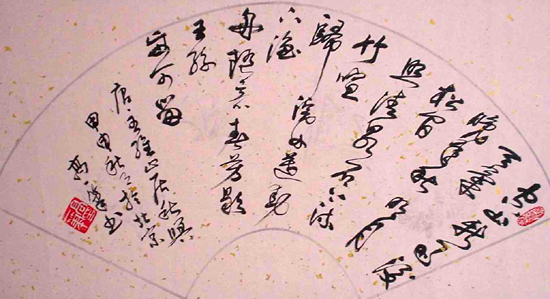 空山新雨後
天氣
晚來秋明月
松間
照清泉石上流
竹喧
歸浣女蓮動
下漁
舟隨意春芳歇
王孫
自可留
唐王維山居秋興
甲申秋於北京
高書